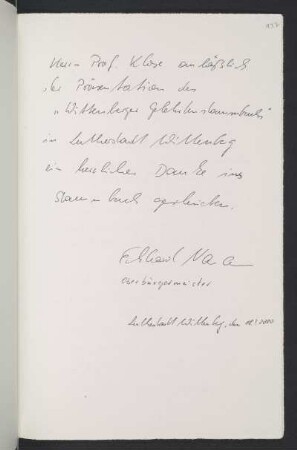 Herrn Prof. Klose anläßlich
der Präsentation des
"Wittenberger Gelehrtenstammbuchs"
in Lutherstadt Wittenberg
ein herzliches Danke ins
Stammbuch geschrieben.
Eckhard Naumann
Oberbürgermeister
Lutherstadt Wittenberg, den